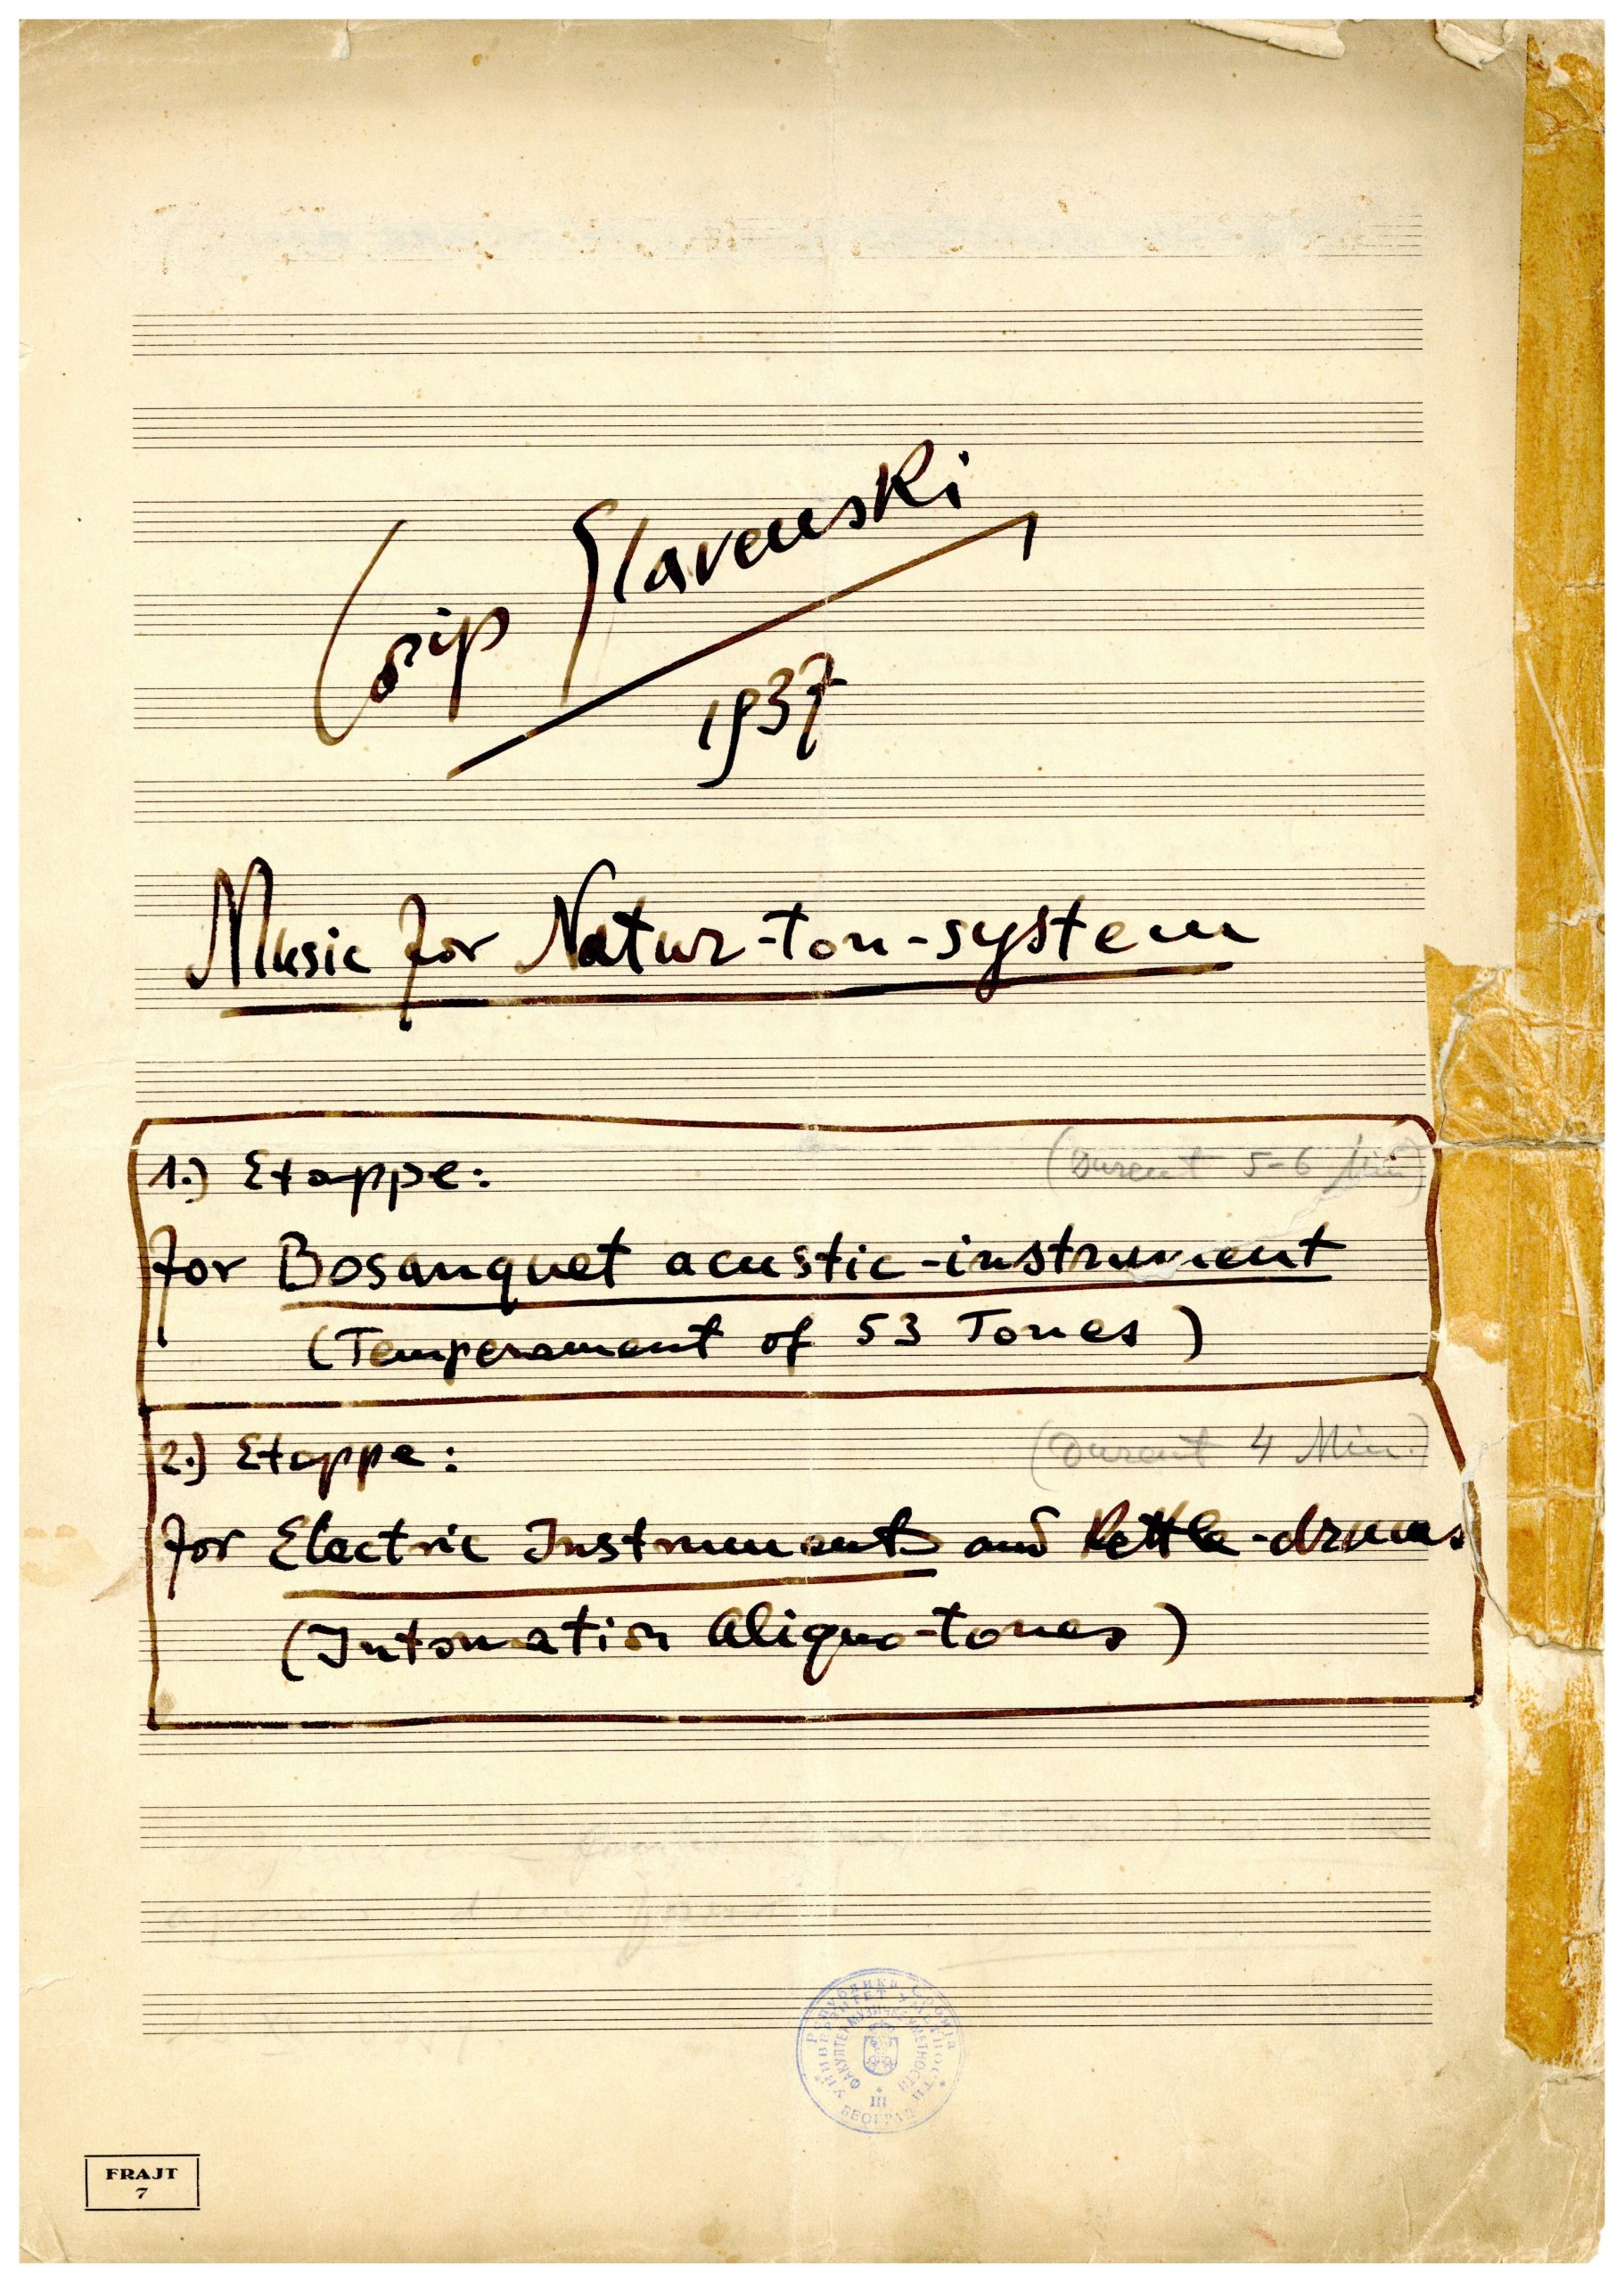 Josip Slavenski
1937
Music for Natur-ton-system
1.) Etappe:
(Durent 5-6 Min)
for Bosanquet acustic-instrument
(Temperament of 53 Tones)
2.) Etappe:
(Durent 4 Min.)
for Electric Instruments and Kettle-drums
(Intonation Aliquo-tones)
РЕПУБЛИКА СРБИЈА
УНИВЕРЗИТЕТ УМЕТНОСТИ
ФАКУЛТЕТ МУЗИЧКЕ УМЕТНОСТИ
III
БЕОГРАД
FRAJT
7